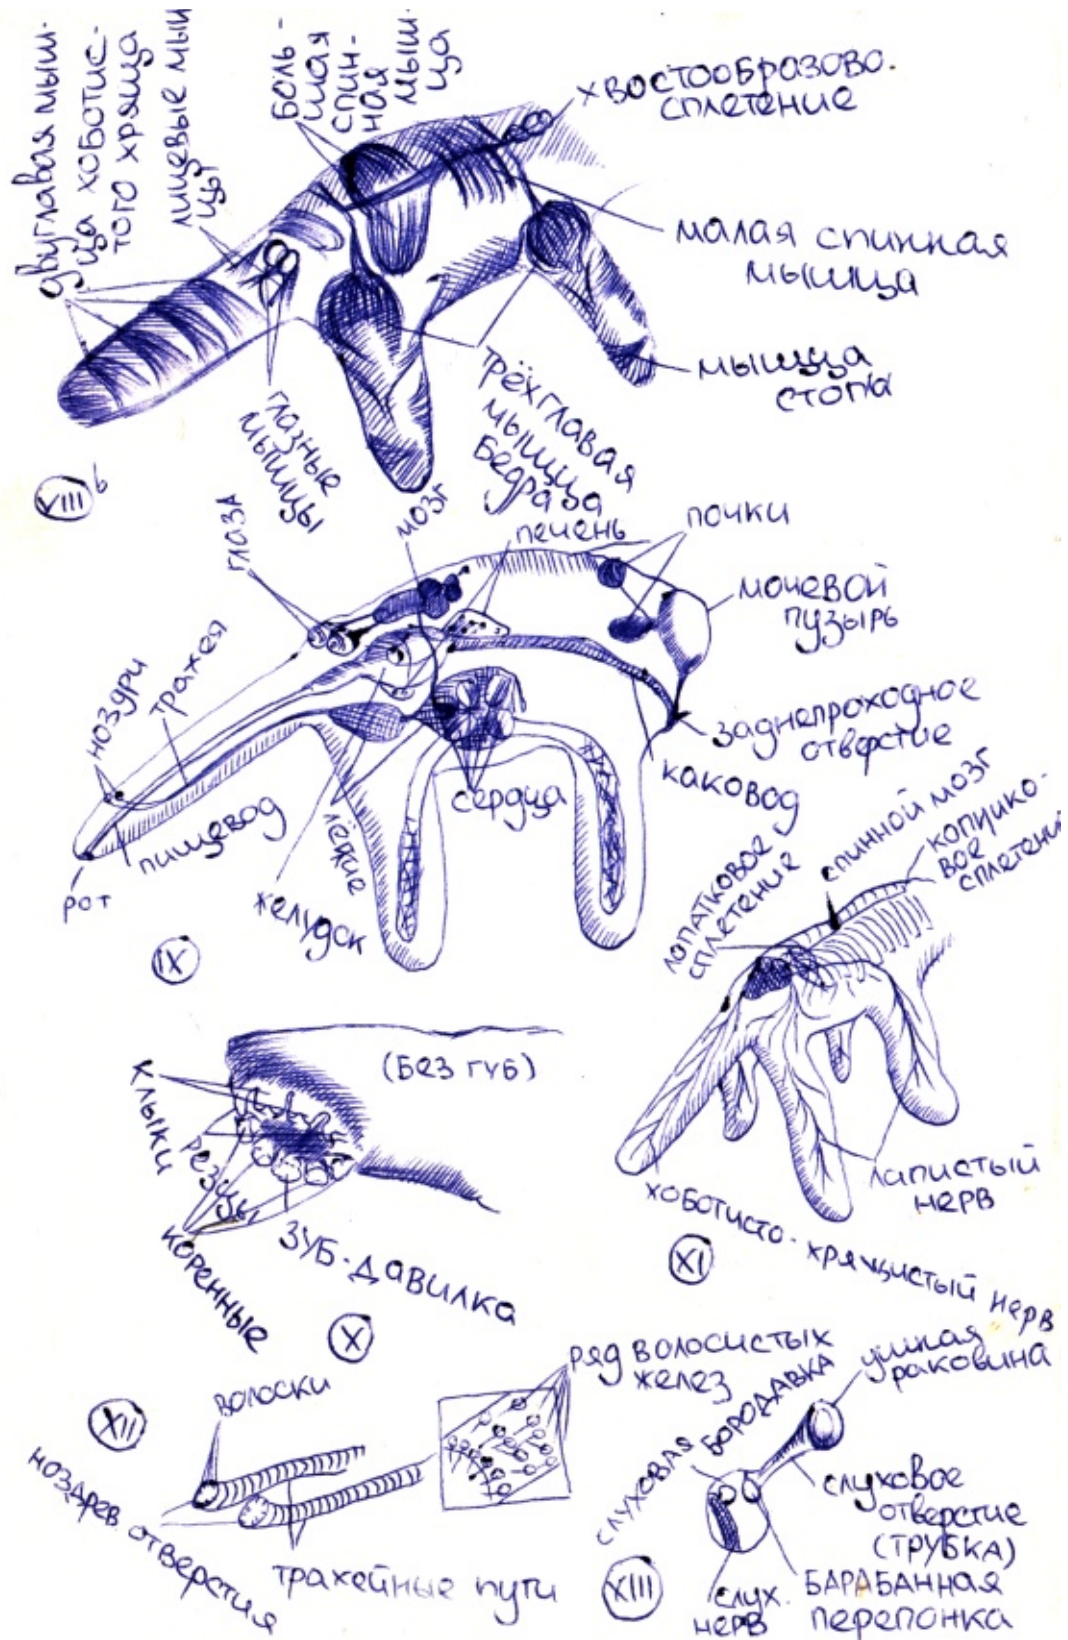 двуглавая мыш-
ца хоботис-
того хряща
лицевые мы
цы
боль-
шая
спин-
ная
мыш
ца
хвостообразово-
сплетение
малая спинная
мышца
мышца
стопа
трёхглавая
мышца
бедра
глазные
мышцы
VIII б
глаза
мозг
печень
почки
мочевой
пузырь
ноздри
трахея
заднепроходное
отверстие
каковод
сердца
пищевод
лёгкие
желудок
рот
IX
лопатковое
сплетение
спинной мозг
копчико-
вое
сплетени
лапистый
нерв
хоботисто-хрящистый нерв
XI
(без губ)
клыки
резцы
коренные
зуб-давилка
X
XII
волоски
ноздрев. отверстия
трахейные пути
ряд волосистых
желез
слуховая бородавка
ушная
раковина
слуховое
отверстие
(трубка)
барабанная
перепонка
слух.
нерв
XIII